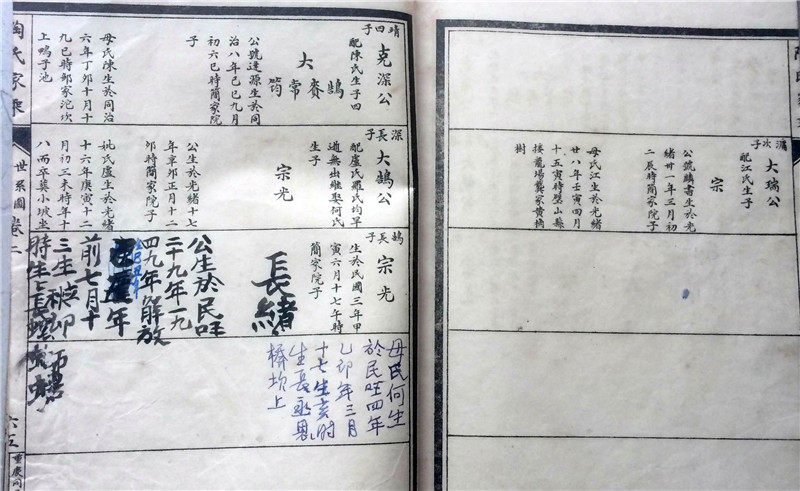 次子
大瑞公
配江氏生子
宗
公號麟書生於光
緒卅一年三月初
二辰時簡家院子
母氏江生於光緒
廿八年壬寅四月
十五寅時璧山縣
接龍場龔家黄桷
樹
靖四子
克深公
配陳氏生子四
大
鵠
賚
常
筠
公號逢源生於同
治八年己巳九月
初六巳時簡家院
子
母氏陳生於同治
六年丁卯十月十
九巳時鄧家沱坎
上鳴子池
深長子
大鵠公
配盧氏羅氏均早
逝無出繼娶何氏
生子
宗光
公生於光緒十七
年辛卯正月十二
卯時簡家院子
妣氏盧生於光緒
十六年庚寅十二
月初三未時年十
八而卒葬小坡坐
鵠長子
宗光
生於民國三年甲
寅六月十七午時
簡家院子
長緒
公生於民国
二十九年一九
四九年解放
年
前七月十
三生
母氏何生
於民国四年
乙卯年三月
十七生亥时
生長
坎上
陶氏家乘
世系圖
卷二
六五
重慶